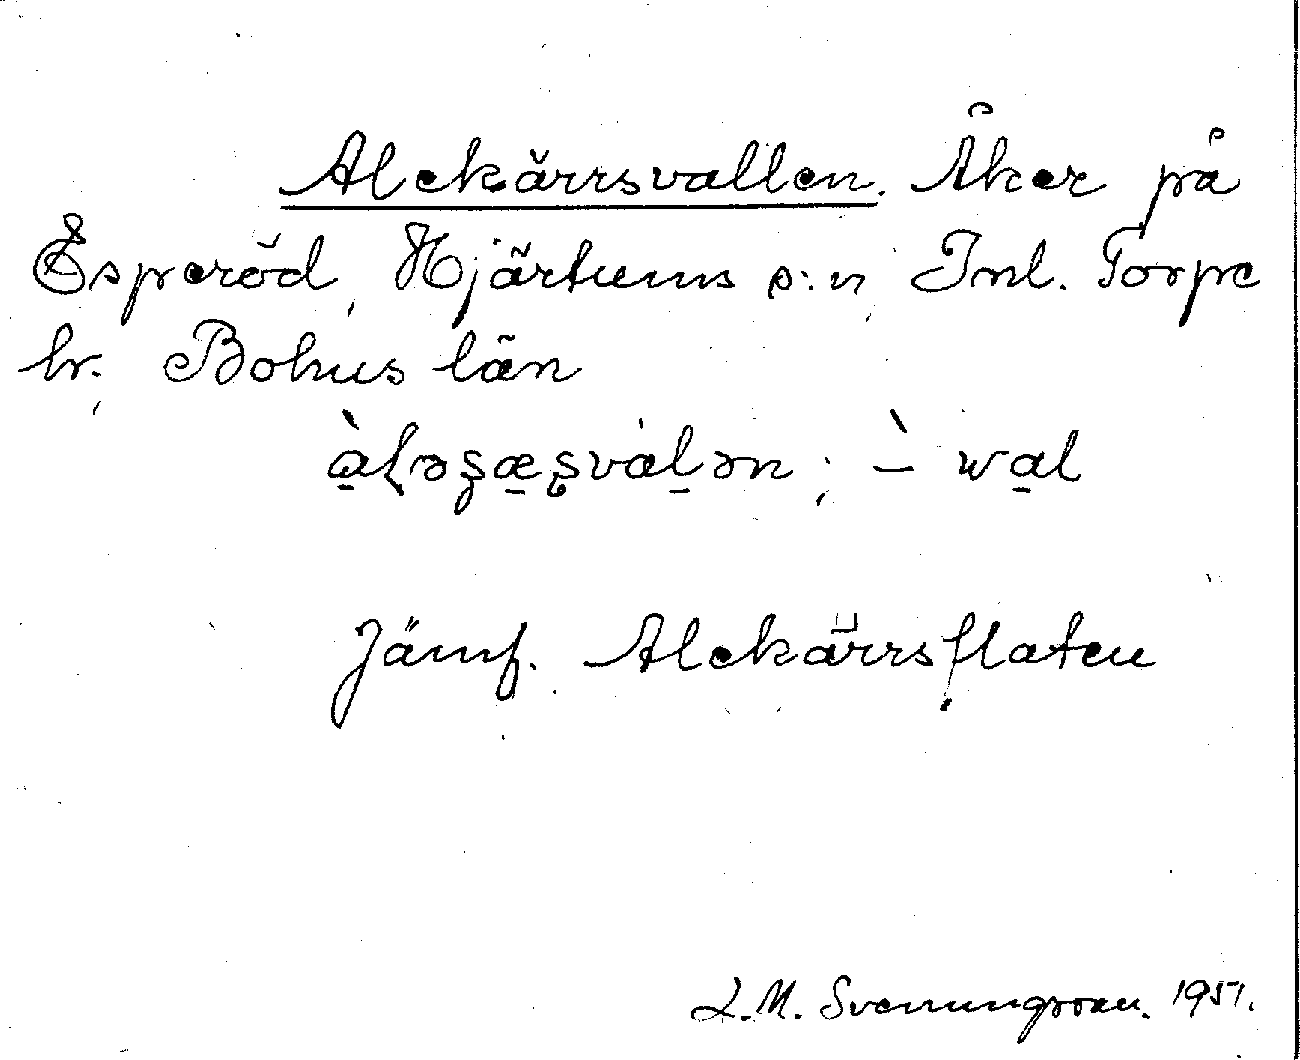 Alekärrsvallen. Åker på
Esperöd, Hjärtums s:n, Inl. Torpe
hr. Bohus län
àl̩əʂæʂvàlən; -̀ wal
Jämf. Alekärrsflaten
L.M. Svenungsson. 1951.